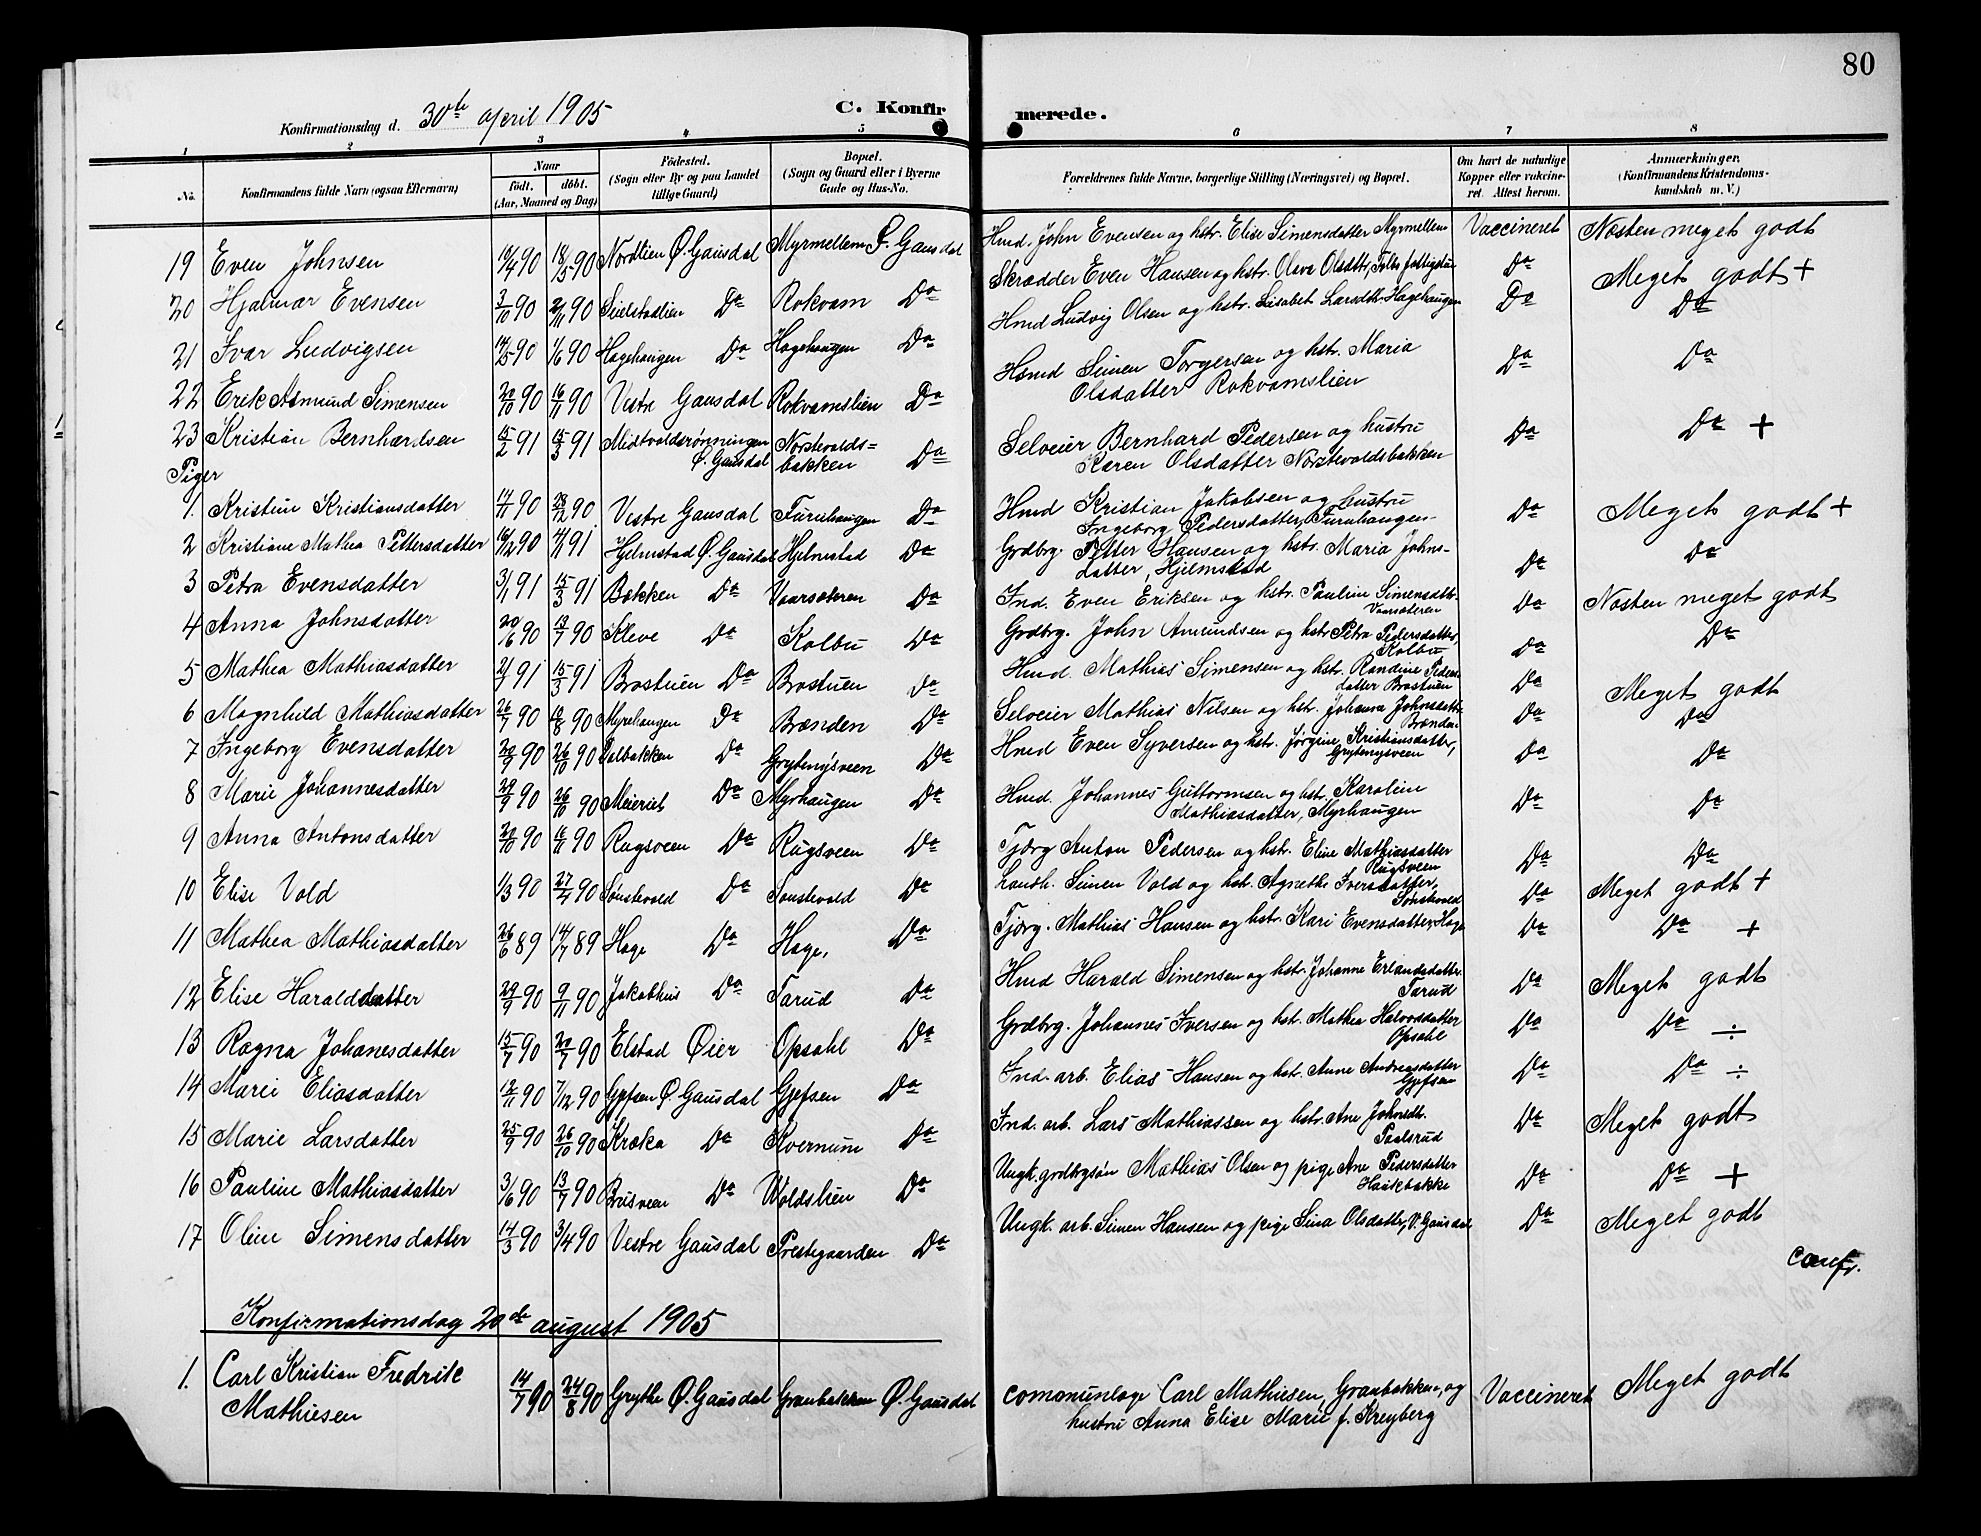 80
Konfirmationsdag d. 30te april 1905
C. Konfirmerede.
1 2 3 4 5 6 7 8
No. Konfirmandens fulde Navn (ogsaa Efternavn) Naar født. døbt. (Aar, Maaned og Dag) Födested. (Sogn eller By og paa Landet tillige Gaard) Bopæl. (Sogn og Gaard eller i Byerne Gade og Hus-No. Forældrenes fulde Navne, borgerlige Stilling (Næringsvei) og Bopæl. Om havt de naturlige Kopper eller vaccineret. Attest herom. Anmærkninger. (Konfirmandens Kristendomskundskab m. V.)
19 Even Johnsen 90 18/5 90 Nordlien Ø. Gausdal Myrmellem Ø. Gausdal Hmd. John Evensen og hstr. Elise Simensdatter Myrmellem Vaccineret Næsten meget godt
20 Hjalmar Evensen 3/10 90 90 Seielstadlien Do Rokvam Do Skrædder Even Hansen og hstr. Olava Olsdttr, Do Meget godt +
21 Ivar Ludvigsen 14/5 90 1/6 90 Hagehaugen Do Hagehaugen Do Hmd Ludvig Olsen og hstr. Lisabet Larsdttr Hagehaugen Do Do
22 Erik Asmund Simensen 20/10 90 16/11 90 Vestre Gausdal Rokvamslien Do Hmd Simen Torgersen og hstr. Maria
Olsdatter Rokvamslien Do Do
23 Kristian Bernhardsen 15/2 91 15/3 91 Midtvoldsrønningen Ø. Gausdal Norstevolds=bakken Do Selveier Bernhard Pedersen og hustru
Karen Olsdatter Norstevoldsbakken Do Do +
Piger
1. Kristine Kristiansdatter 17/11 90 28/12 90 Vestre Gausdal Furuhaugen Do Hmd Kristian Jakobsen og hustru
Ingeborg Pedersdatter, Furuhaugen Do Meget godt +
2 Kristiane Mathea Pettersdatter 16/12 90 91 Hjelmstad Ø. Gausdal Hjelmstad Do Grdbrg. Petter Hansen og hstr. Maria Johns-
datter, Hjelmstad Do Do
3 Petra Evensdatter 3/1 91 15/3 91 Bakken Do Vaarsæteren Do Ind. Even Eriksen og hstr. Pauline Simensdttr.
Vaarsæteren Do Næsten meget godt
4 Anna Johnsdatter 20/6 90 13/7 90 Kleve Do Kolbu Do Grdbrg. John Amundsen og hstr Petra Pedersdatter,
Kolbu Do Do
5 Mathea Mathiasdatter 91 15/3 91 Brostuen Do Brostuen Do Hmd. Mathias Simensen og hstr. Randine Peders
datter Brostuen Do Meget godt
6 Magnhild Mathiasdatter 26/7 90 90 Myrehaugen Do Brænden Do Selveier Mathias Nilsen og hstr. Johanna Johnsdattr
Brænden Do Do
7 Ingeborg Evensdatter 90 26/10 90 Dalbakken Do Grytenysveen Do Hmd Even Syversen og hstr. Jørgine Kristiansdatter,
Grytenysveen Do Do
8 Marie Johannesdatter 29/9 90 26/10 90 Meieriet Do Myrhaugen Do Hmd. Johannes Guttormsen og hstr. Karoline
Mathiasdatter, Myrhaugen Do Do
9 Anna Antonsdatter 20/10 90 16/11 90 Rugsveen Do Rugsveen Do Tjorg Anton Pedersen og hstr. Eline Mathiasdatter
Rugsveen Do Do
10 Elise Vold 1/3 90 27/4 90 Sønstevold Do Sønstevold Do Landh. Simen Vold og hst. Agnethe Iversdatter,
Sønstevold Do Meget godt +
11 Mathea Mathiasdatter 26/6 89 14/7 89 Hage Do Hage, Do Tjorg. Mathias Hansen og hstr. Kari Evensdatter, Hage Do Do +
12 Elise Haralddatter 29/9 90 9/11 90 Jakobhus Do Tarud Do Hmd Harald Simensen og hstr. Johanne Erlandsdatter.
Tarud Do Meget godt
13 Ragna Johanesdatter 15/7 90 20/7 90 Elstad Øier Opsahl Do Grdbrg. Johannes Iversen og hst. Mathea Halvorsdatter
Opsahl Do Do ÷
14 Marei Eliasdatter 12/11 90 7/12 90 Gjefsen Ø. Gausdal Gjefsen Do Ind. arb. Elias Hansen og hst. Anne Andreasdatter
Gjefsen Do Do ÷
15 Marie Larsdatter 25/9 90 26/10 90 Kræka Do Kvernum Do Ind. arb. Lars Mathiassen og hstr Ane Johnsdt.
Paalsrud Do Meget godt
16 Pauline Mathiasdatter 3/6 90 13/7 90 Brusveen Do Woldslien Do Ungk. grdbrgsøn Mathias Olsen og pige Ane Pedersdatter
Haukbakke Do Do +
17 Oline Simensdatter 14/3 90 3/4 90 Vestre Gausdal Prestegaarden Do Ungk. arb. Simen Hansen og pige Sina Olsdatter, V. Gausdal Do Meget godt
Conf.
Konfirmationsdag 20de august 1905
1. Carl Kristian Fredrik
Mathiesen 14/7 90 24/8 90 Grythe Ø. Gausdal Granbakken Ø. Gausdal Comonunlæge Carl Mathiesen, Granbakken, og
hustru Anna Elise Marie f. Kreyberg Vaccineret Meget godt